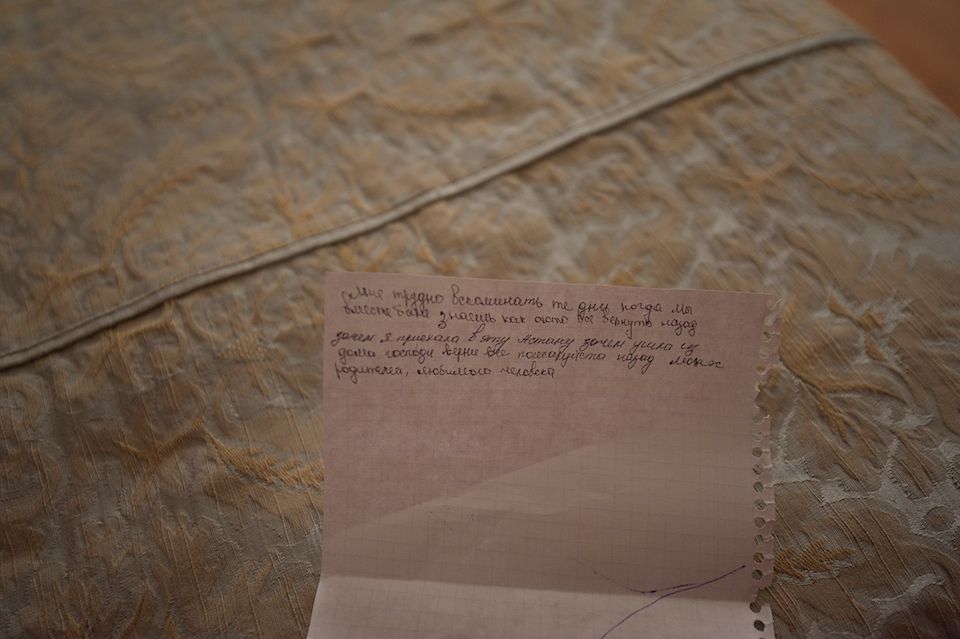 Мне трудно вспоминать те дни когда мы
вместе были знаешь как охото все вернуть назад
зачем я приехала в эту Астану зачем ушла из
дома господи верни все пожалуйста назад моих
родителей, любимого человека